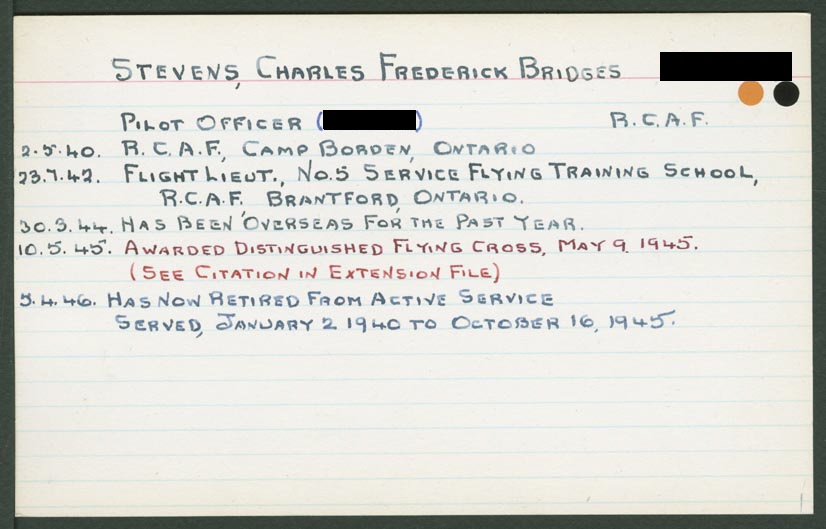 STEVENS, CHARLES FREDERICK BRIDGES
PILOT OFFICER ( ) R.C.A.F.
2.5.40. R.C.A.F., CAMP BORDEN, ONTARIO
23.7.42. FLIGHT LIEUT., NO.5 SERVICE FLYING TRAINING SCHOOL,
R.C.A.F. BRANTFORD, ONTARIO.
30.3.44. HAS BEEN OVERSEAS FOR THE PAST YEAR.
10.5.45. AWARDED DISTINGUISHED FLYING CROSS, MAY 9. 1945.
(SEE CITATION IN EXTENSION FILE)
5.4.46. HAS NOW RETIRED FROM ACTIVE SERVICE
SERVED, JANUARY 2 1940 TO OCTOBER 16, 1945.